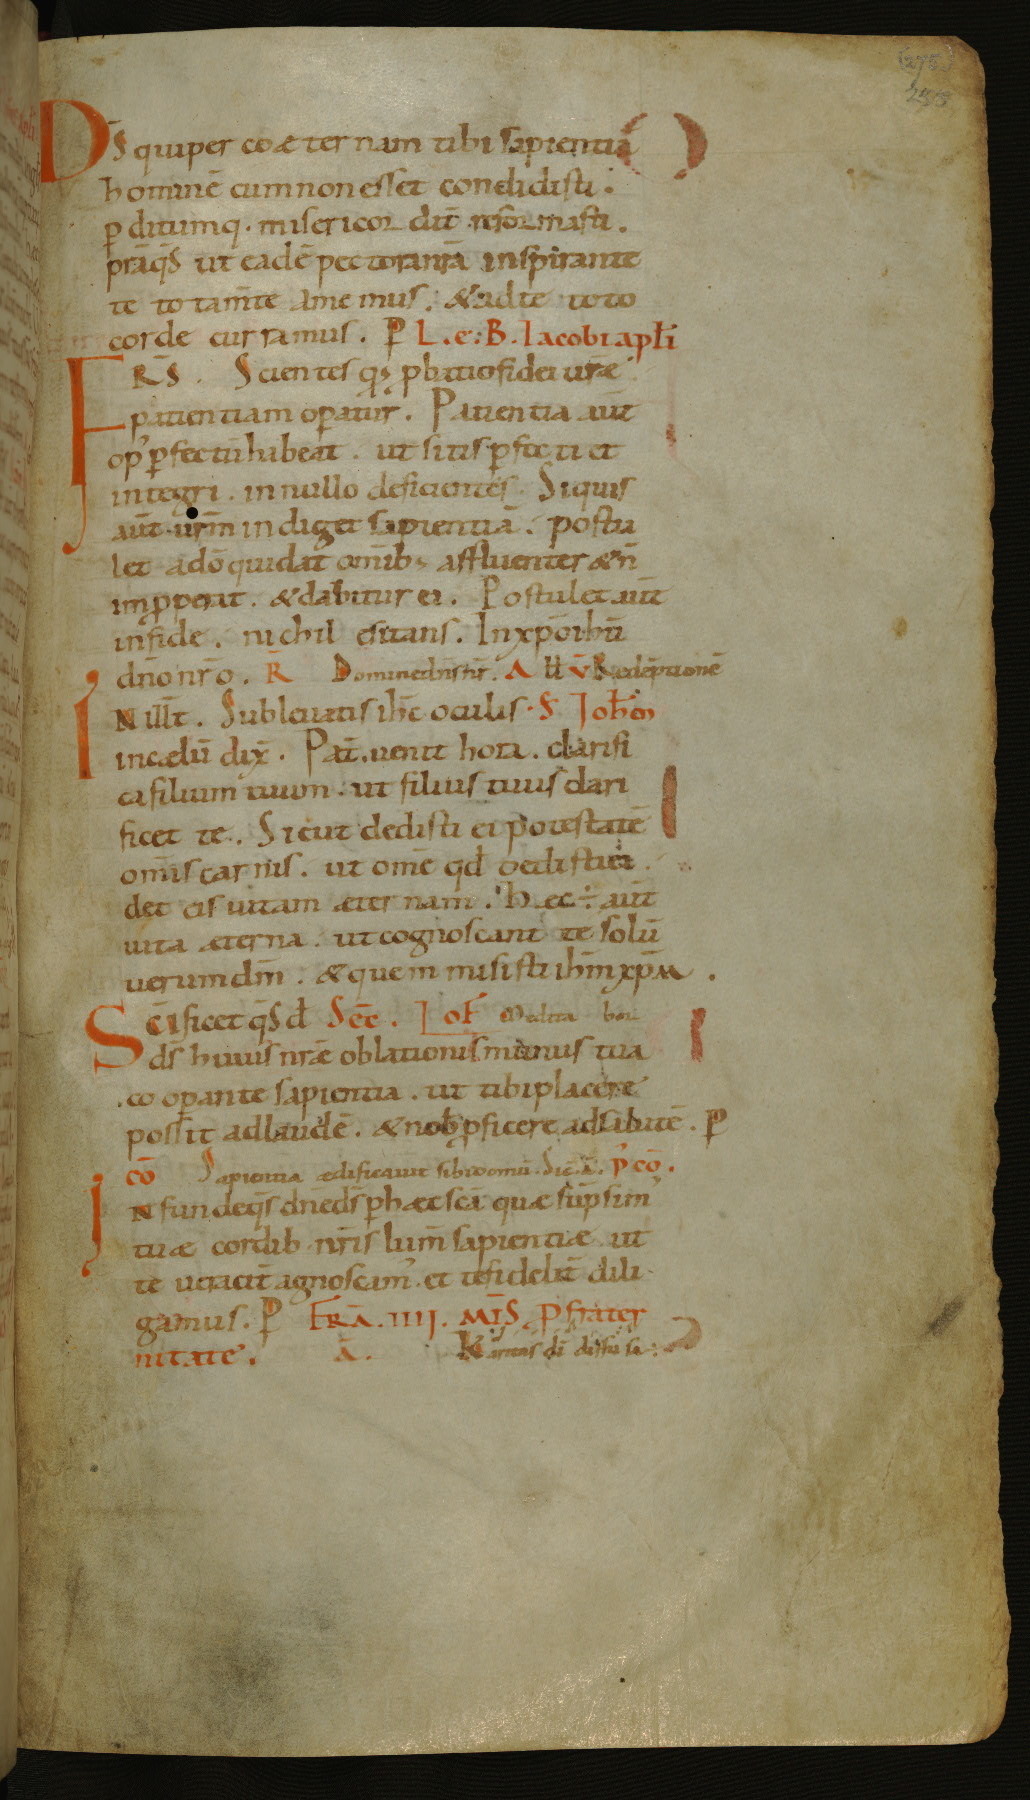 (275)
DS̄ qui per coæternam tibi sapientiā
hominē cum non esset condidisti.
p̄ditumq. misericordit̄ reformasti.
prāq̄s ut eadē pectora nr̄a inspirante
te tota m̄te amemus. & ad te toto
corde curramus. P L. e: B. Iacobi apl̄i
FRS̄. Scientes qs p̄batio fidei ur̄æ
patientiam op̄atur. Patientia aut̄
op' p̄fectū habeat. ut sitis p̄fecti et
integri. in nullo deficientes. Siquis
aut̄ ur̄m indiget sapientiā. postu
let a dō qui dat omīb; affluenter & n̄
imp̄perat. & dabitur ei. Postulet aut̄
in fide. nichil esitans. In xp̄o ihū
dn̄o nr̄o. R̄ Domine dn̄s nr̄. A ll v̄ Redēptionē
IN ill̄t. Subleuatis ih̄c oculis. S̄ Ioh̄em
in cælū dix̄. Pat̄. uenit hora. clarifi
ca filium tuum. ut filius tuus clari
ficet te. Sicut dedisti ei potestatē
om̄is carnis. ut om̄e qd̄ dedisti ei.
det eis uitam æternam. Hec ÷ aut̄
uita æterna. ut cognoscant te solū
uerum dm̄. & quem misisti ih̄m xp̄m.
Sc̄ificet q̄s d̄ Sēc. I oh̄
ds̄ huius nr̄æ oblationis munus tua
cooperante sapientia. ut tibi placere
possit ad laudē. & nob̄ p̄ficere ad salutē. P
cō Sapientia ædificauit sibi domū. Sic ā. p' cō.
INfunde q̄s dn̄e ds̄ p̄ hæc sc̄a quæ sūpsim'
tuæ cordib. nr̄is lum̄ sapientiæ ut
te ueracit̄ agnoscam'. et te fidelit̄ dili
gamus. P FRA. IIII. MIS̄ P frater
nitate. Ā. Karitas dī diffusa: